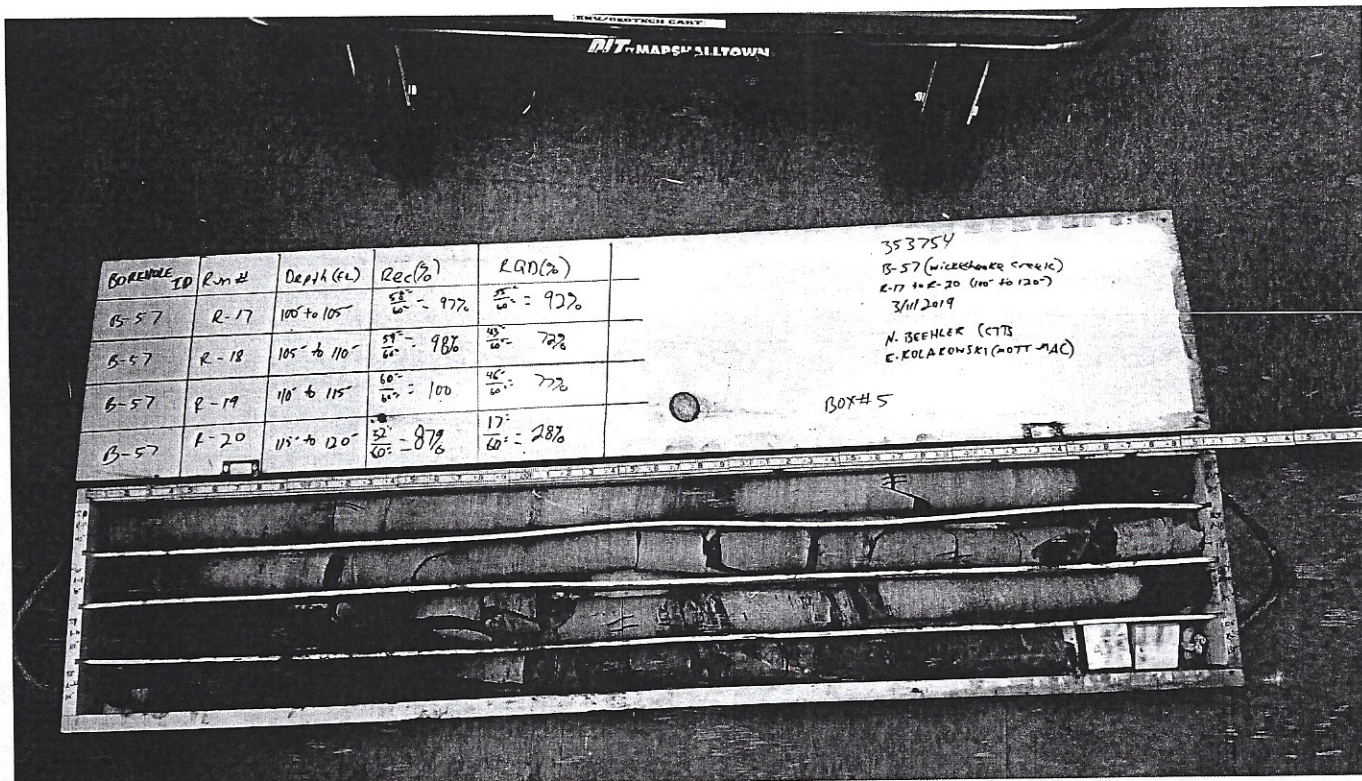 ENV/GEOTECH CART
MARSHALLTOWN
BOREHOLE ID Run # Depth (ft) Rec (%) RQD (%)
B-57 R-17 100' to 105' 58"/60" = 97% 55"/60" = 92%
B-57 R-18 105' to 110' 59"/60" = 98% 43"/60" = 72%
B-57 R-19 110' to 115' 60"/60" = 100 46"/60" = 77%
B-57 R-20 115' to 120' 52"/60" = 87% 17"/60" = 28%
353754
B-57 (wickecheoke creek)
R-17 to R-20 (100' to 120')
3/11/2019
N. BEEHLER (CTTS
E. KOLAKOWSKI (MOTT MAC)
BOX# 5